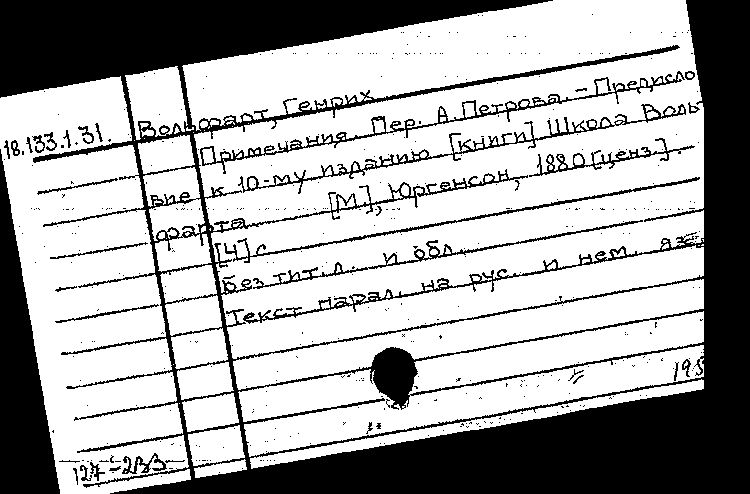 18.133.1.31. Вольфарт, Генрих
Примечания. Пер. А. Петрова. – Предисло
вие к 10-му изданию [книги] Школа Воль
фарта. [М.], Юргенсон, 1880 [ценз.].
[4] с
Без тит. л. и обл.
Текст парал. на рус. и нем. яз.
195